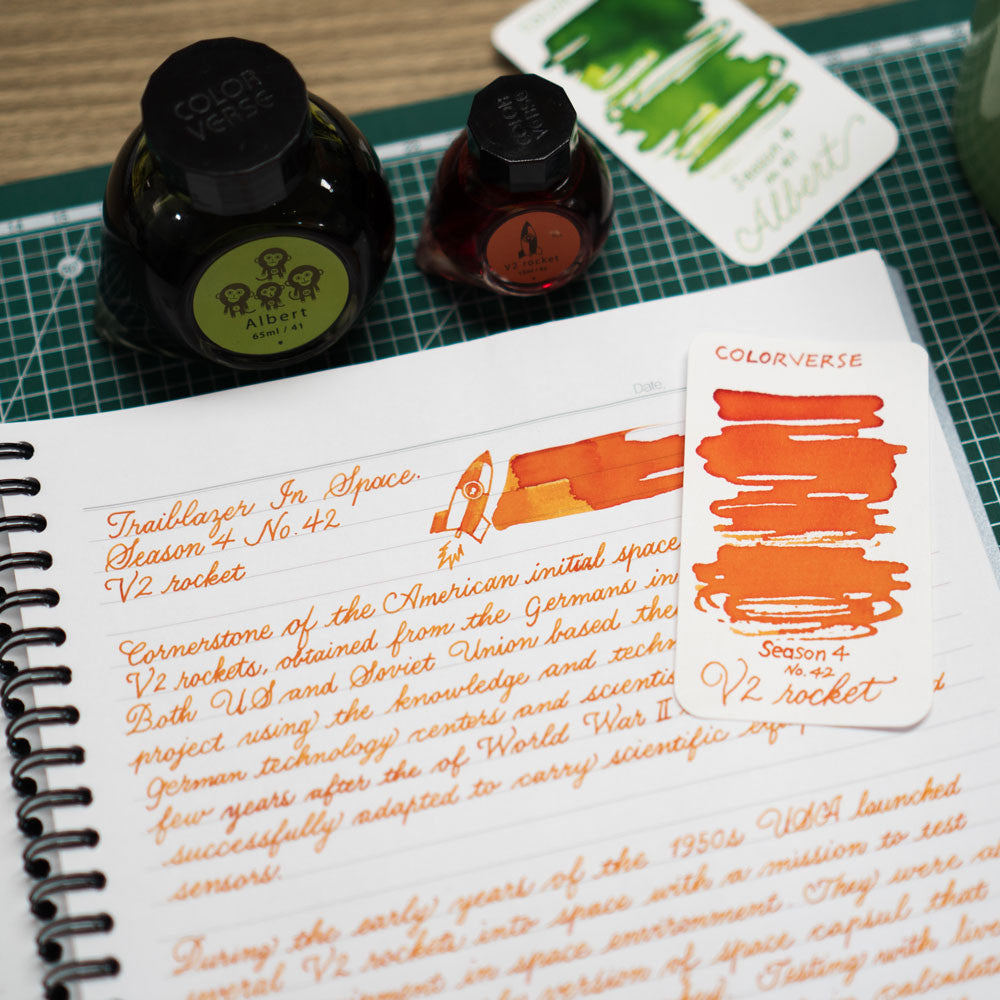 COLOR
VERSE
COLOR
VERSE
Albert
65ml / 41
V2 rocket
15ml / 42
Season 4
No. 41
Albert
Date,
COLORVERSE
Season 4
No. 42
V2 rocket
Trailblazer In Space.
Season 4 No. 42
V2 rocket
Cornerstone of the American initial space
V2 rockets, obtained from the Germans in
Both US and Soviet Union based the
project using the knowledge and techn
German technology centers and scientis
few years after the of World War II
successfully adapted to carry scientific
sensors.
During the early years of the 1950s USA launched
several V2 rockets into space with a mission to test
in space environment. They were a
version of space capsul that
Testing with live